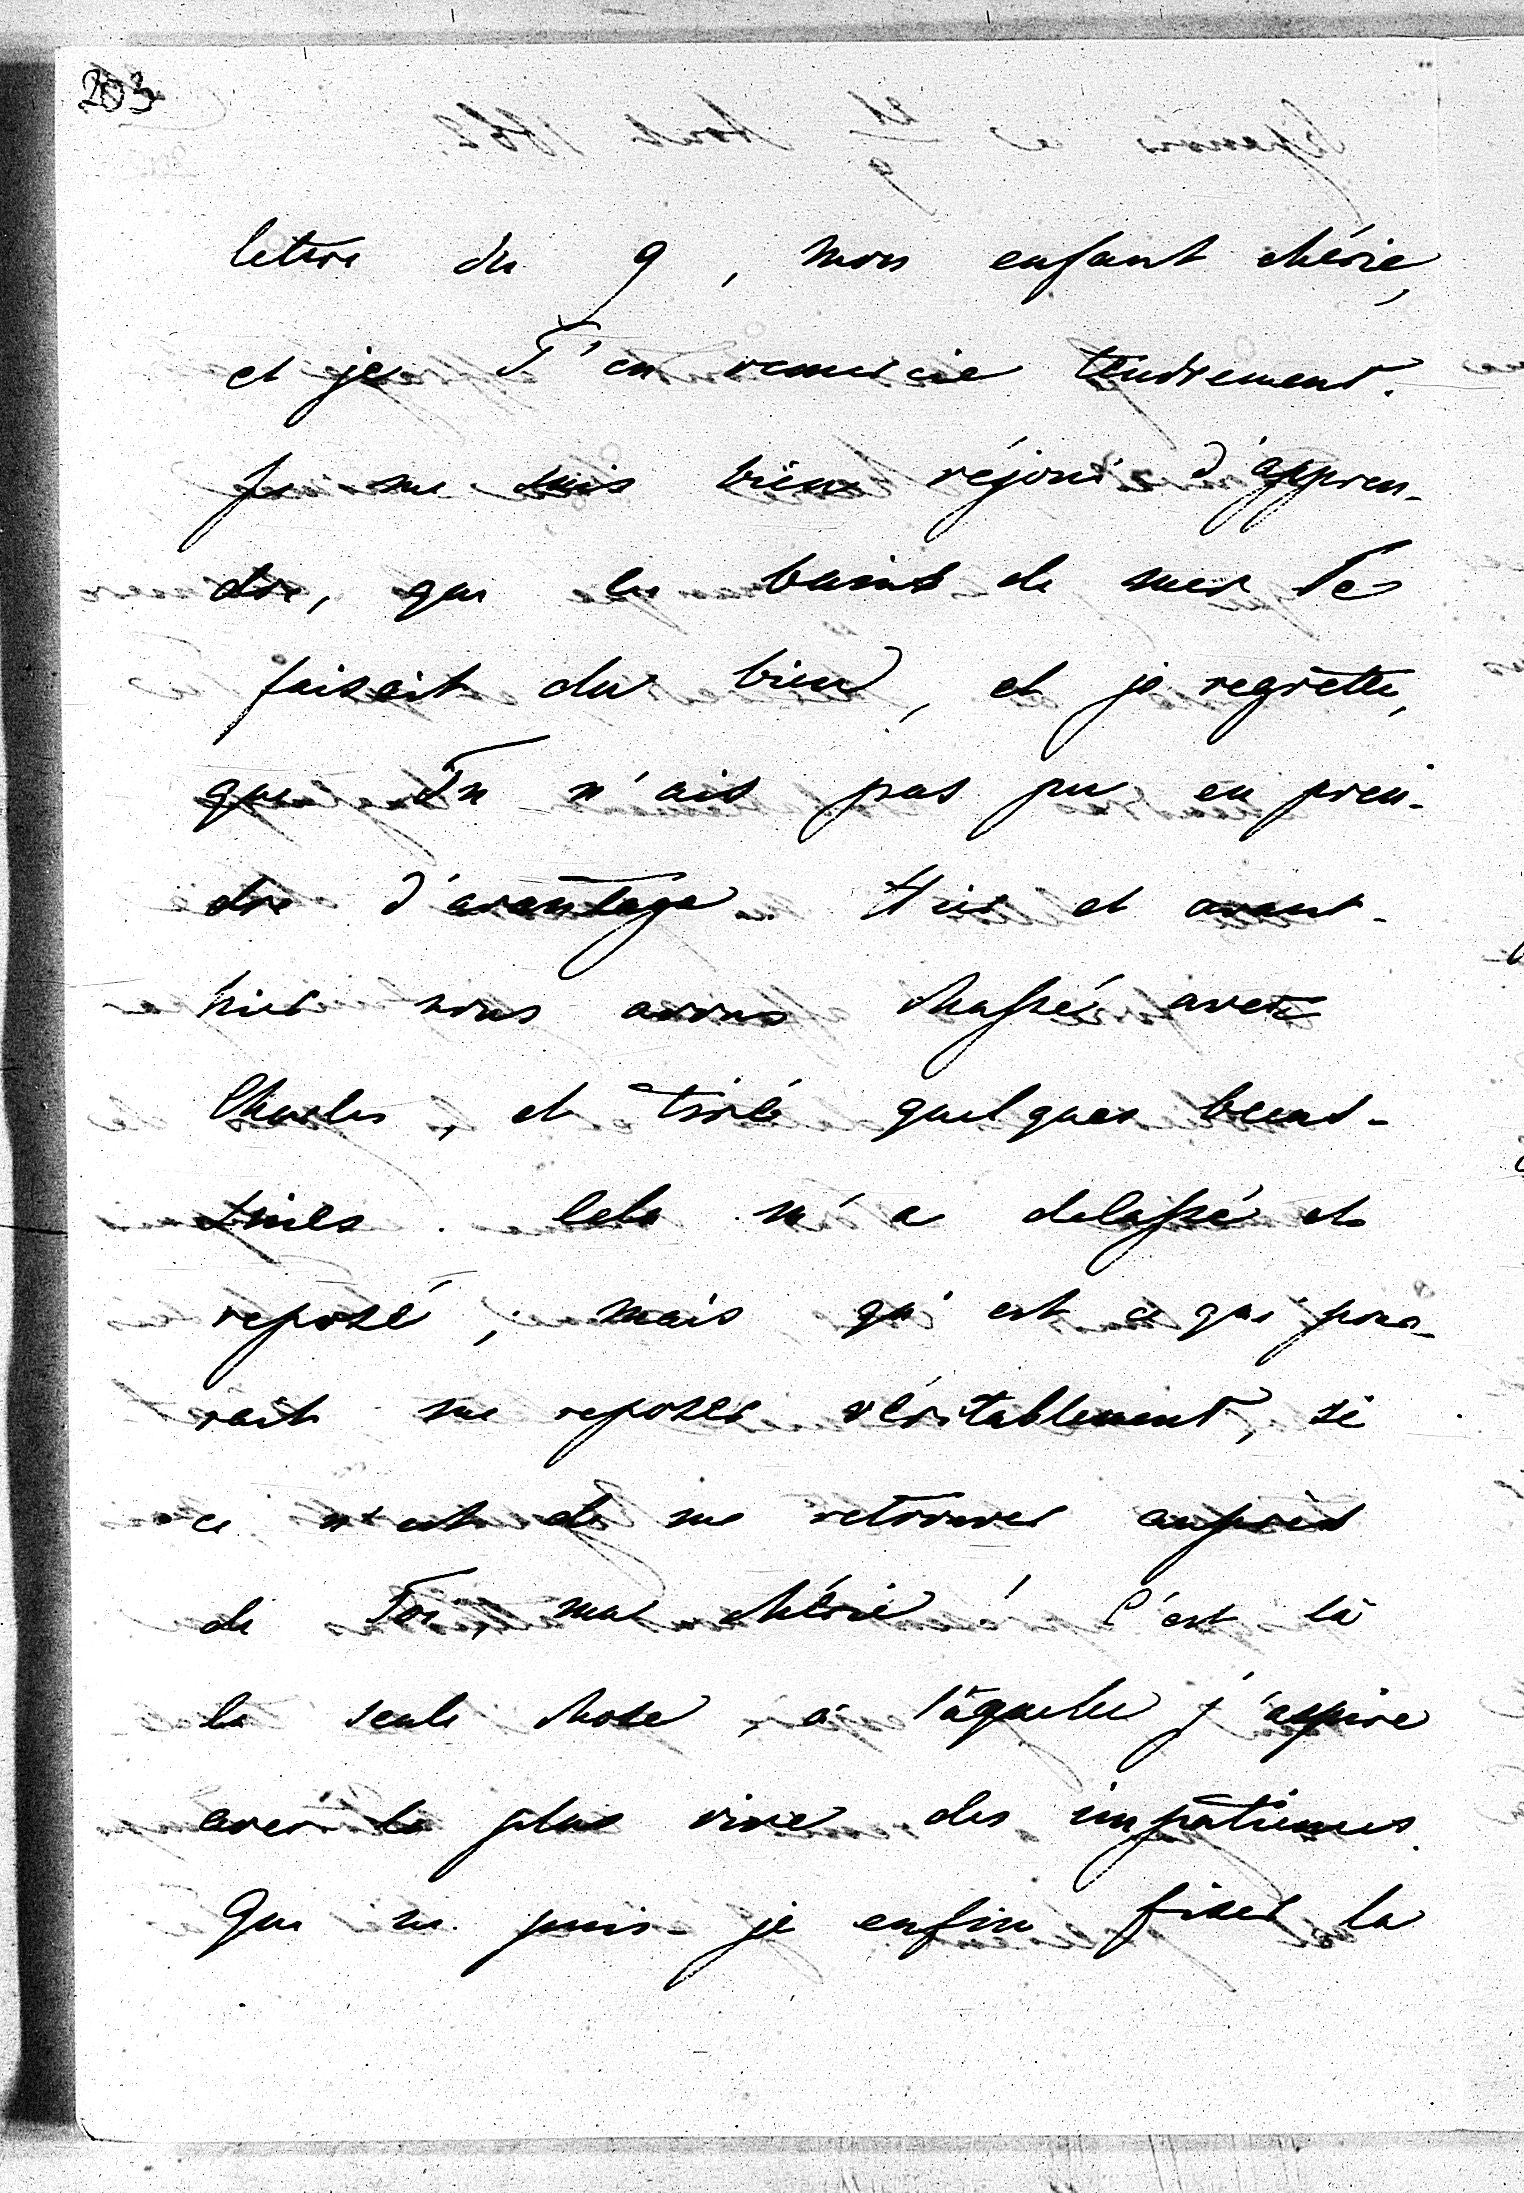 203
lettre du 9, mon enfant chérie,
et je T'en remercie tendrement.
Je me suis bien réjoui d'appren-
dre, que les bains de mer Te
faisait du bien, et je regrette,
que Tu n'ais pas pu en pren-
dre d'avantage. Hier et avant-
hier nous avons chassé avec
Charles, et tiré quelques becas-
sines. Cela m'a delassé et
reposé; mais qu'est ce qui pour-
rait me reposer véritablement, si
ce n'est de me retrouver auprès
de Toi, ma chérie! C'est là
la seule chose, à laquelle j'aspire
avec la plus vive des impatiences.
Que ne puis-je enfin fixer la